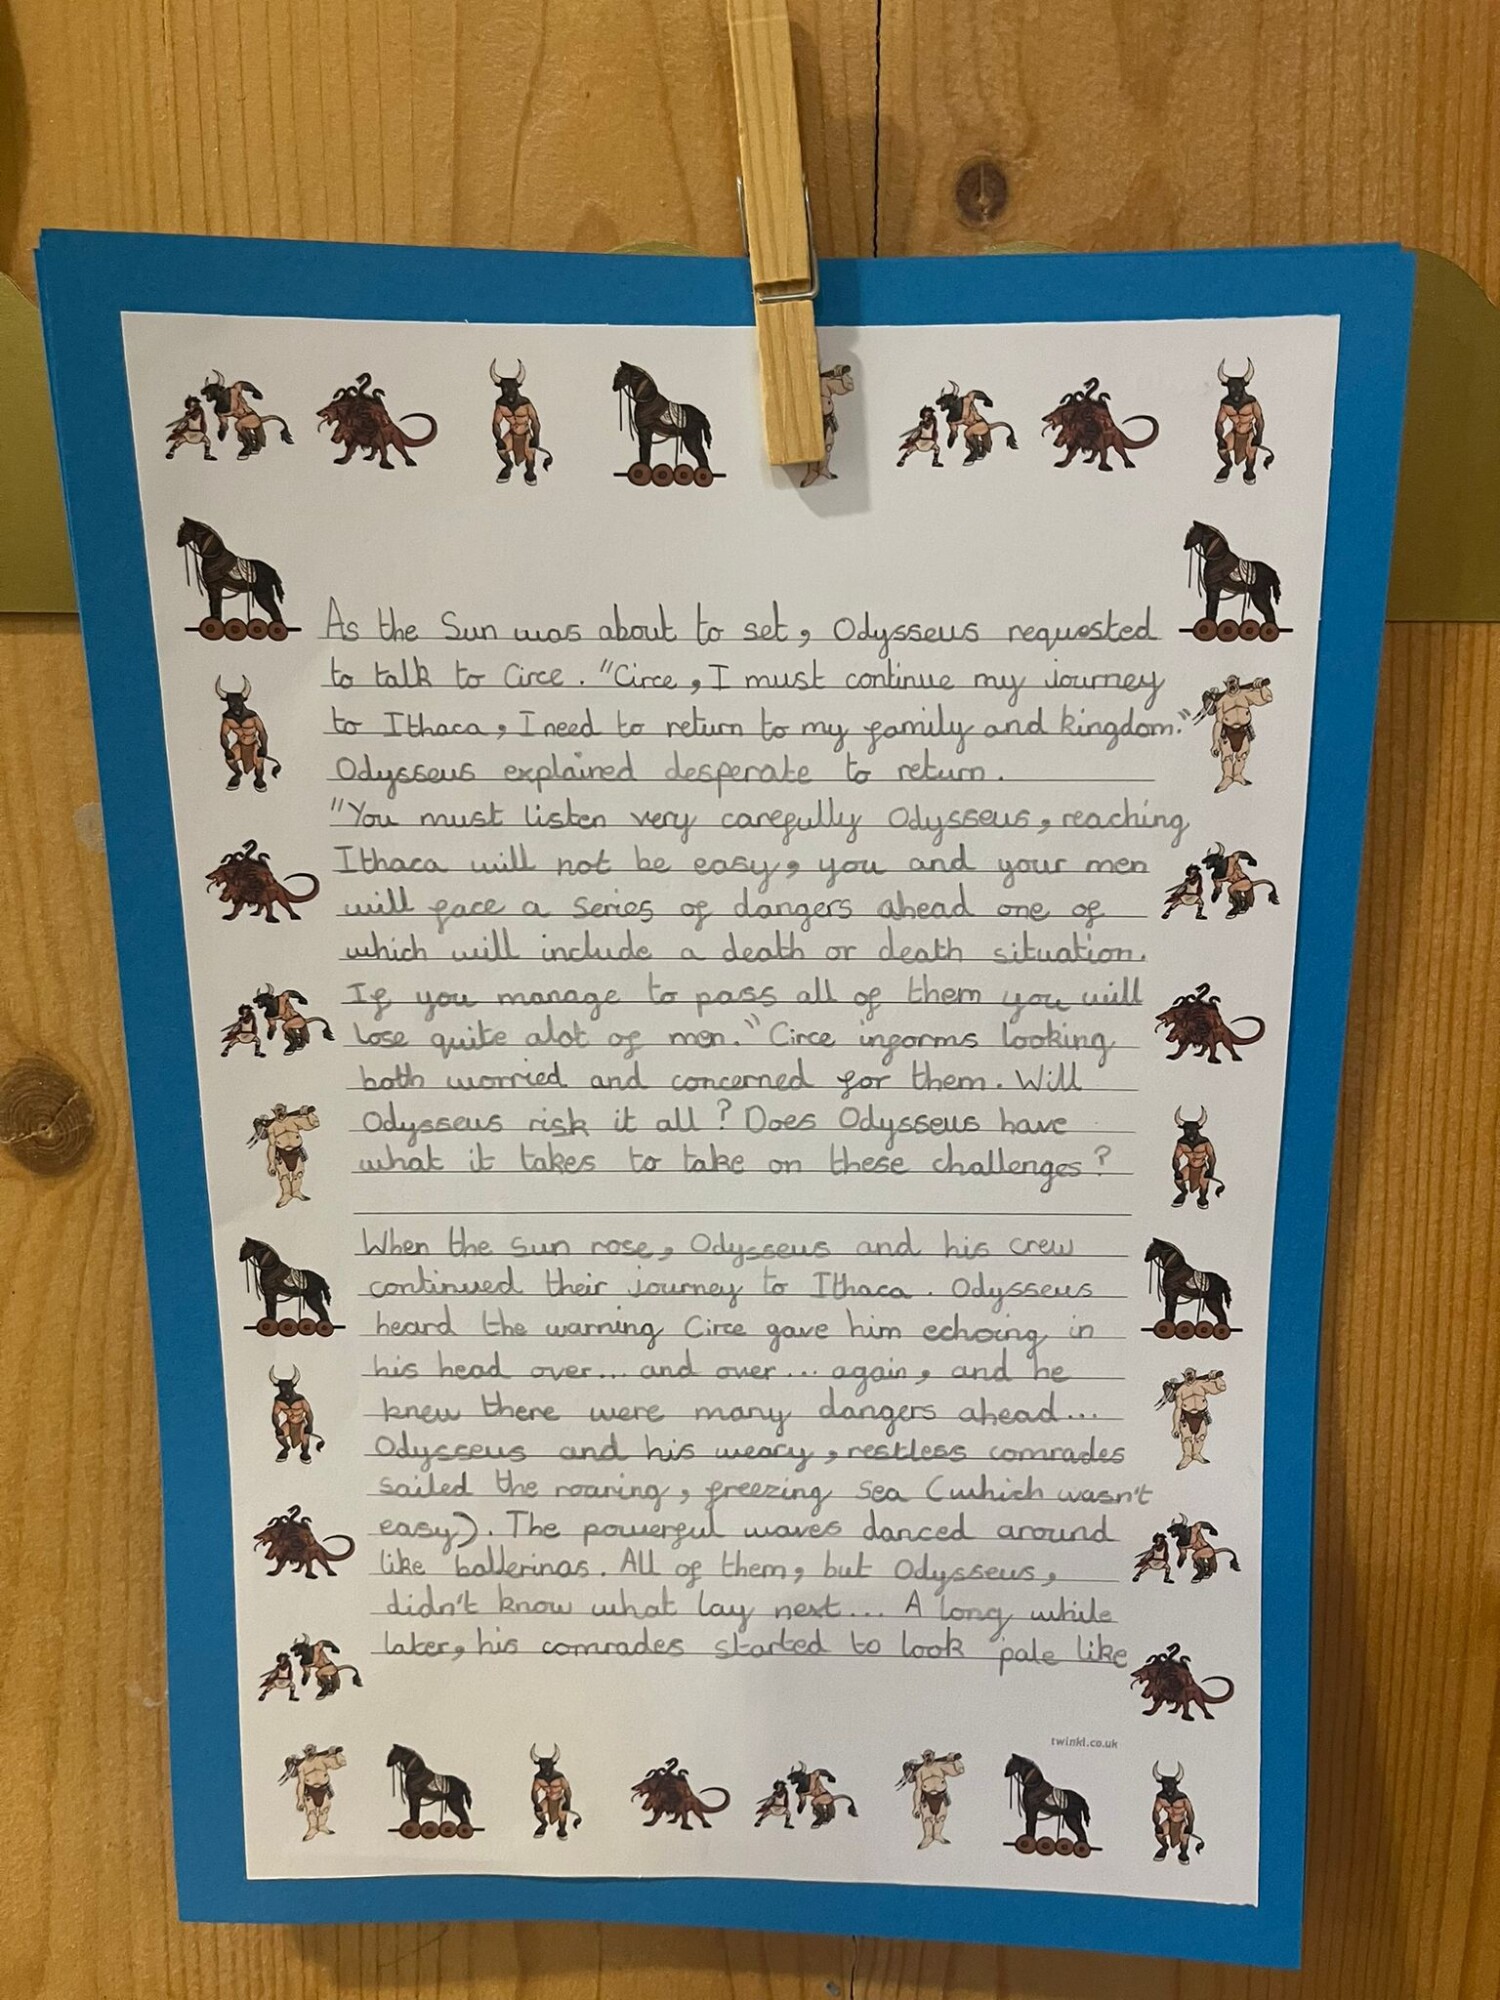 As the Sun was about to set, Odysseus requested
to talk to Circe. "Circe, I must continue my journey
to Ithaca, I need to return to my family and kingdom."
Odysseus explained desperate to return.
"You must listen very carefully Odysseus, reaching
Ithaca will not be easy, you and your men
will face a series of dangers ahead one of
which will include a death or death situation.
If you manage to pass all of them you will
lose quite alot of men." Circe informs looking
both worried and concerned for them. Will
Odysseus risk it all? Does Odysseus have
what it takes to take on these challenges?
When the sun rose, Odysseus and his crew
continued their journey to Ithaca. Odysseus
heard the warning Circe gave him echoing in
his head over... and over... again, and he
knew there were many dangers ahead...
Odysseus and his weary, restless comrades
sailed the roaring, freezing sea (which wasn't
easy). The powerful waves danced around
like ballerinas. All of them, but Odysseus,
didn't know what lay next... A long while
later, his comrades started to look pale like
twinkl.co.uk